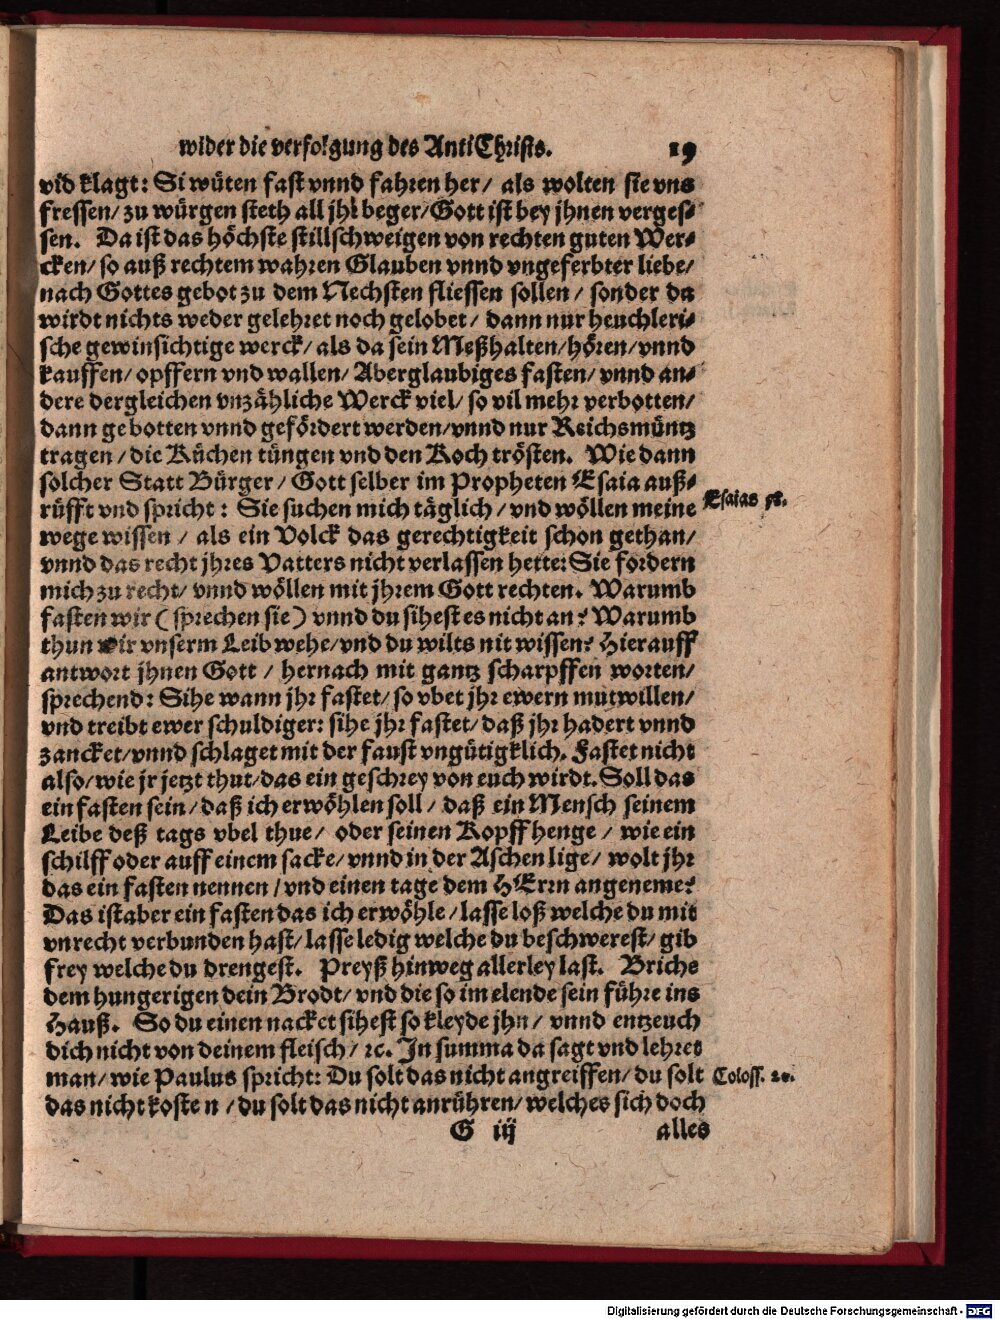 wider die verfolgung des AntiChrists. 19
vid klagt: Si wüten fast vnnd fahren her/ als wolten sie vns
fressen/ zu würgen steth all jhr beger/ Gott ist bey jhnen verges-
sen. Da ist das höchste stillschweigen von rechten guten Wer-
cken/ so auß rechtem wahren Glauben vnnd vngeferbter liebe/
nach Gottes gebot zu dem Nechsten fliessen sollen/ sonder da
wirdt nichts weder gelehret noch gelobet/ dann nur heuchleri-
sche gewinsichtige werck/ als da sein Meßhalten/ hören/ vnnd
kauffen/ opffern vnd wallen/ Aberglaubiges fasten/ vnnd an-
dere dergleichen vnzähliche Werck viel/ so vil mehr verbotten/
dann gebotten vnnd gefördert werden/ vnnd nur Reichsmüntz
tragen/ die Küchen tüngen vnd den Koch trösten. Wie dann
solcher Statt Bürger/ Gott selber im Propheten Esaia auß-
rüfft vnd spricht: Sie suchen mich täglich/ vnd wöllen meine
Esaias 58.
wege wissen/ als ein Volck das gerechtigkeit schon gethan/
vnnd das recht jhres Vatters nicht verlassen hette: Sie fordern
mich zu recht/ vnnd wöllen mit jhrem Gott rechten. Warumb
fasten wir (sprechen sie) vnnd du sihest es nicht an? Warumb
thun wir vnserm Leib wehe/ vnd du wilts nit wissen? Hierauff
antwort jhnen Gott/ hernach mit gantz scharpffen worten/
sprechend: Sihe wann jhr fastet/ so vbet jhr ewern mutwillen/
vnd treibt ewer schuldiger: sihe jhr fastet/ daß jhr hadert vnnd
zancket/ vnnd schlaget mit der faust vngütigklich. Fastet nicht
also/ wie jr jetzt thut/ das ein geschrey von euch wirdt. Soll das
ein fasten sein/ daß ich erwöhlen soll/ daß ein Mensch seinem
Leibe deß tags vbel thue/ oder seinen Kopff henge/ wie ein
schilff oder auff einem sacke/ vnnd in der Aschen lige/ wolt jhr
das ein fasten nennen/ vnd einen tage dem HErrn angeneme?
Das ist aber ein fasten das ich erwöhle/ lasse loß welche du mit
vnrecht verbunden hast/ lasse ledig welche du beschwerest/ gib
frey welche du drengest. Preyß hinweg allerley last. Briche
dem hungerigen dein Brodt/ vnd die so im elende sein führe ins
Hauß. So du einen nacket sihest so kleyde jhn/ vnnd entzeuch
dich nicht von deinem fleisch/ ꝛc. In summa da sagt vnd lehret
man/ wie Paulus spricht: Du solt das nicht angreiffen/ du solt
Coloss. 2.
das nicht kosten/ du solt das nicht anrühren/ welches sich doch
G iij alles
Digitalisierung gefördert durch die Deutsche Forschungsgemeinschaft - DFG